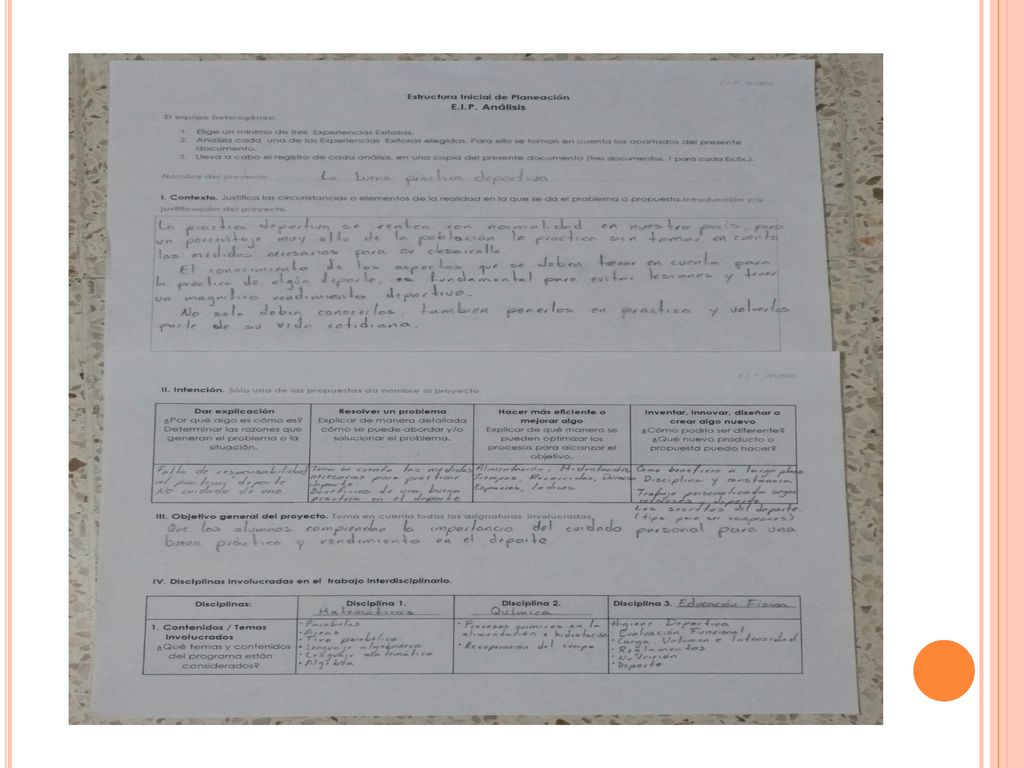 E.I.P. Análisis
Estructura Inicial de Planeación
E.I.P. Análisis
El equipo heterogéneo:
1. Elige un mínimo de tres Experiencias Exitosas.
2. Analiza cada una de las Experiencias Exitosas elegidas. Para ello se toman en cuenta los apartados del presente
documento.
3. Lleva a cabo el registro de cada análisis, en una copia del presente documento (tres documentos, 1 para cada Ex.Ex.).
Nombre del proyecto La buena práctica deportiva
I. Contexto. Justifica las circunstancias o elementos de la realidad en la que se da el problema o propuesta. Introducción y/o
justificación del proyecto
La práctica deportiva se realiza con normalidad en nuestro país, pero
un porcentaje muy alto de la población lo practica sin tomar en cuenta
las medidas necesarias para su desarrollo.
El conocimiento de los aspectos que se deben tener en cuenta para
la práctica de algún deporte, es fundamental para evitar lesiones y tener
un magnífico rendimiento deportivo.
No solo deben conocerlos, también ponerlos en practica y volverlos
parte de su vida cotidiana.
E.I.P. Análisis
II. Intención. Sólo una de las propuestas da nombre al proyecto
Dar explicación
¿Por qué algo es cómo es?
Determinar las razones que
generan el problema o la
situación.
Resolver un problema
Explicar de manera detallada
cómo se puede abordar y/o
solucionar el problema.
Hacer más eficiente o
mejorar algo
Explicar de qué manera se
pueden optimizar los
procesos para alcanzar el
objetivo.
Inventar, innovar, diseñar o
crear algo nuevo
¿Cómo podría ser diferente?
¿Qué nuevo producto o
propuesta puedo hacer?
Falta de responsabilidad
al practicar deporte
No cuidado de uno
Tener en cuenta las medidas
necesarias para practicar
deporte
Beneficios de una buena
práctica en el deporte
Alimentación, Hidratación,
Tiempos, Recorridos, Duración
Espacios, Indices
Como beneficio a largo plazo
Disciplina y constancia
Trabajo personalizado según
intereses y deporte
Los secretos del deporte.
(tips para ser campeones)
III. Objetivo general del proyecto. Toma en cuenta todas las asignaturas involucradas
Que los alumnos comprendan la importancia del cuidado personal para una
buena práctica y rendimiento en el deporte.
IV. Disciplinas involucradas en el trabajo interdisciplinario.
Disciplinas:
Disciplina 1.
Matemáticas
Disciplina 2.
Química
Disciplina 3. Educación Física
1. Contenidos / Temas
involucrados
¿Qué temas y contenidos
del programa están
considerados?
• Parábolas
• Áreas
• Tiro parabólico
• Lenguaje algebraico
• Lenguaje matemático
• Algebra
• Procesos químicos en la
alimentación e hidratación
• Recuperación del cuerpo
Higiene Deportiva
• Evaluación Funcional
• Carga, Volumen e Intensidad
• Reglamentos
• Nutrición
• Deporte